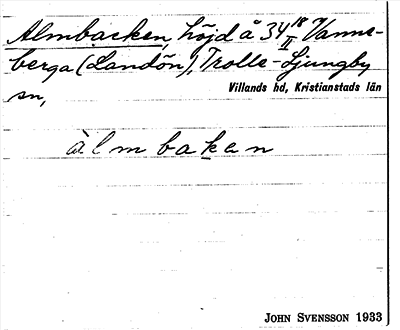 Almbacken, höjd å 34 18/II Vanne-
berga (Landön), Trolle-Ljungby
sn,
Villands hd, Kristianstads län
àlmbakan
JOHN SVENSSON 1933